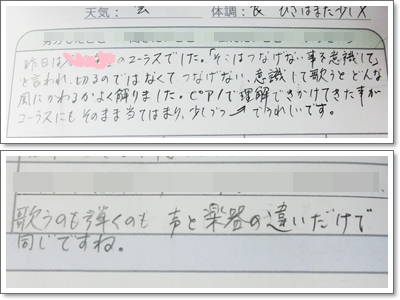 天気: 曇 体調: 良 ひざはまだ少し×
昨日は のコーラスでした。「そこはつなげない事を意識して」
と言われ、切るのではなくてつなげない、意識して歌うとどんな
風にかわるかよく解りました。ピアノで理解できかけてきた事が
コーラスにもそのまま当てはまり、少しづつ→でうれしいです。
歌うのも弾くのも 声と楽器の違いだけで
同じですね。